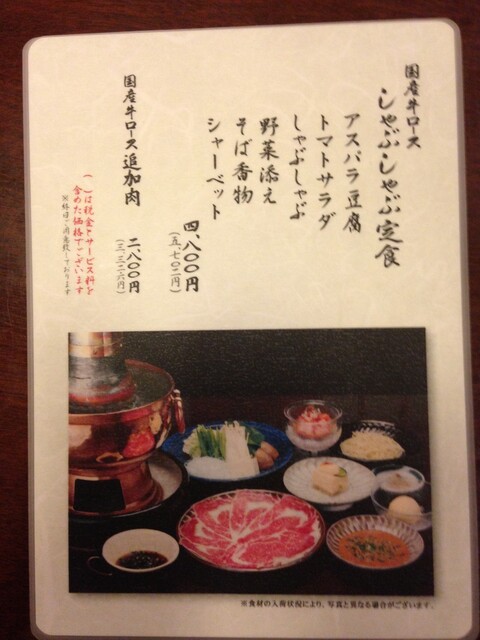 国産牛ロース
しゃぶしゃぶ定食
アスパラ豆腐
トマトサラダ
しゃぶしゃぶ
野菜添え
そば香物
シャーベット
四、八〇〇円
(五、七〇二円)
国産牛ロース追加肉
二、八〇〇円
(三、三二六円)
( )は税金とサービス料を
含めた価格でございます
※食材の入荷状況により、写真と異なる場合がございます。